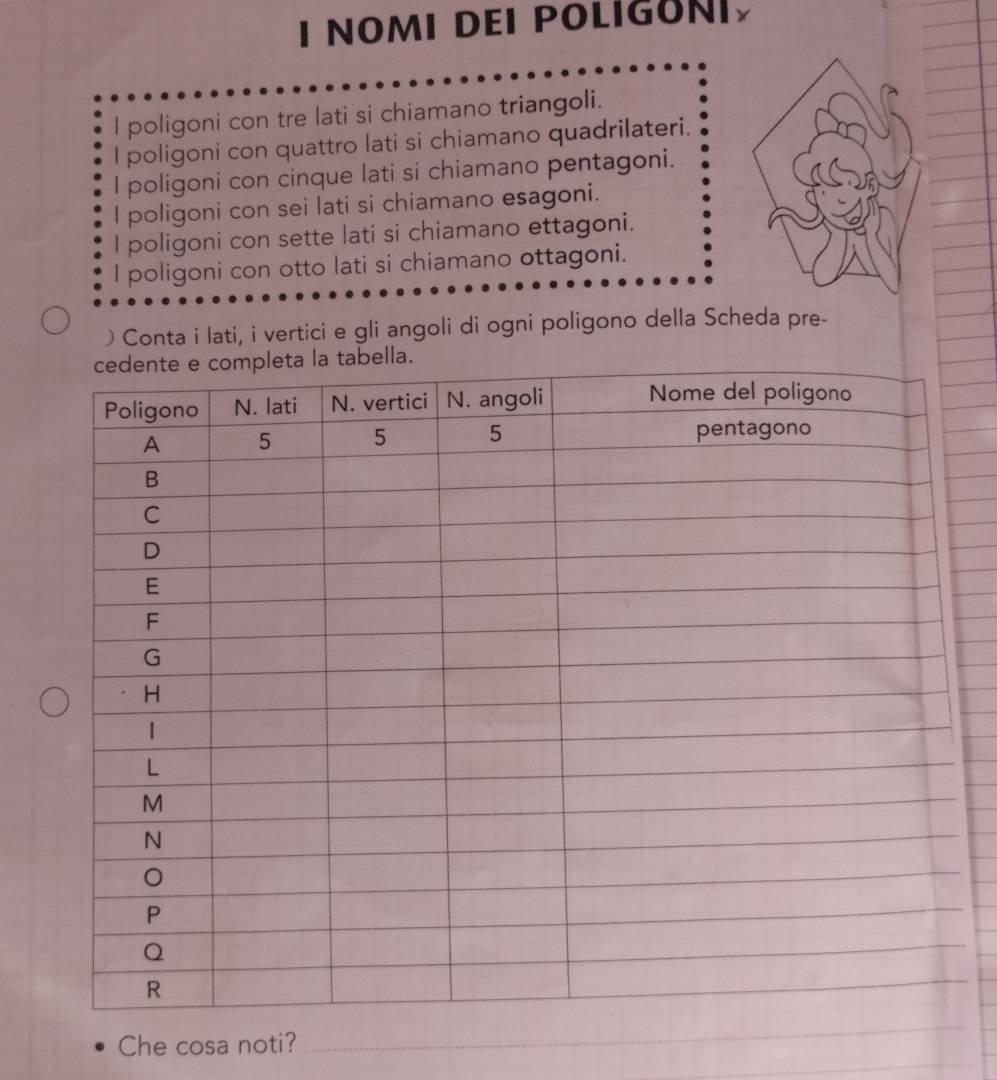 I NOMI DEI POLIGONI
I poligoni con tre lati si chiamano triangoli.
I poligoni con quattro lati si chiamano quadrilateri.
I poligoni con cinque lati si chiamano pentagoni.
I poligoni con sei lati si chiamano esagoni.
I poligoni con sette lati si chiamano ettagoni.
I poligoni con otto lati si chiamano ottagoni.
) Conta i lati, i vertici e gli angoli di ogni poligono della Scheda pre-
cedente e completa la tabella.
Poligono N. lati N. vertici N. angoli Nome del poligono
A 5 5 5 pentagono
B
C
D
E
F
G
H
I
L
M
N
O
P
Q
R
• Che cosa noti?